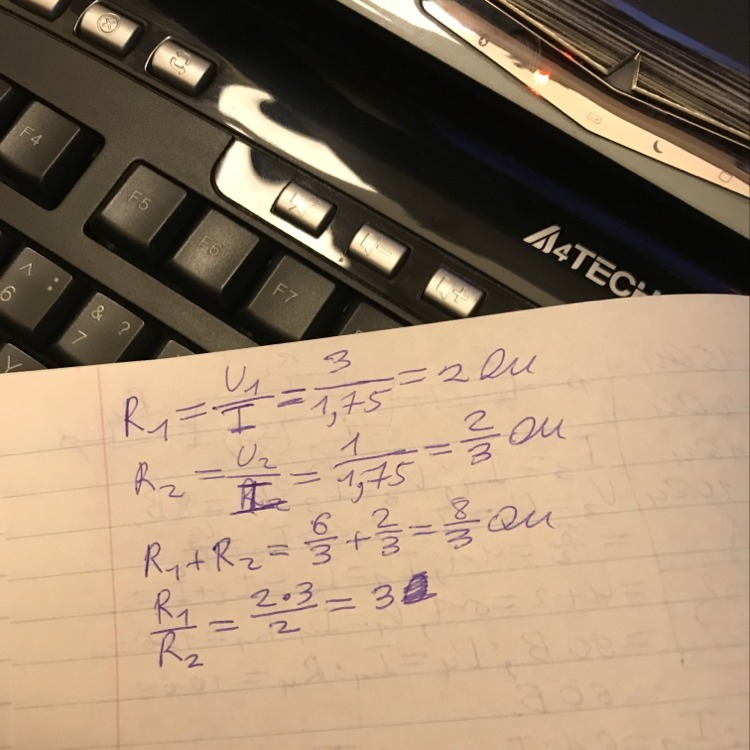 F4
F5
F6
F7
^ :
6
& ?
7
Y
A4TECH
R₁ = U₁/I = 3/1,75 = 2 Ом
R₂ = U₂/I = 1/1,75 = 2/3 Ом
R₁ + R₂ = 6/3 + 2/3 = 8/3 Ом
R₁/R₂ = 2·3/2 = 3